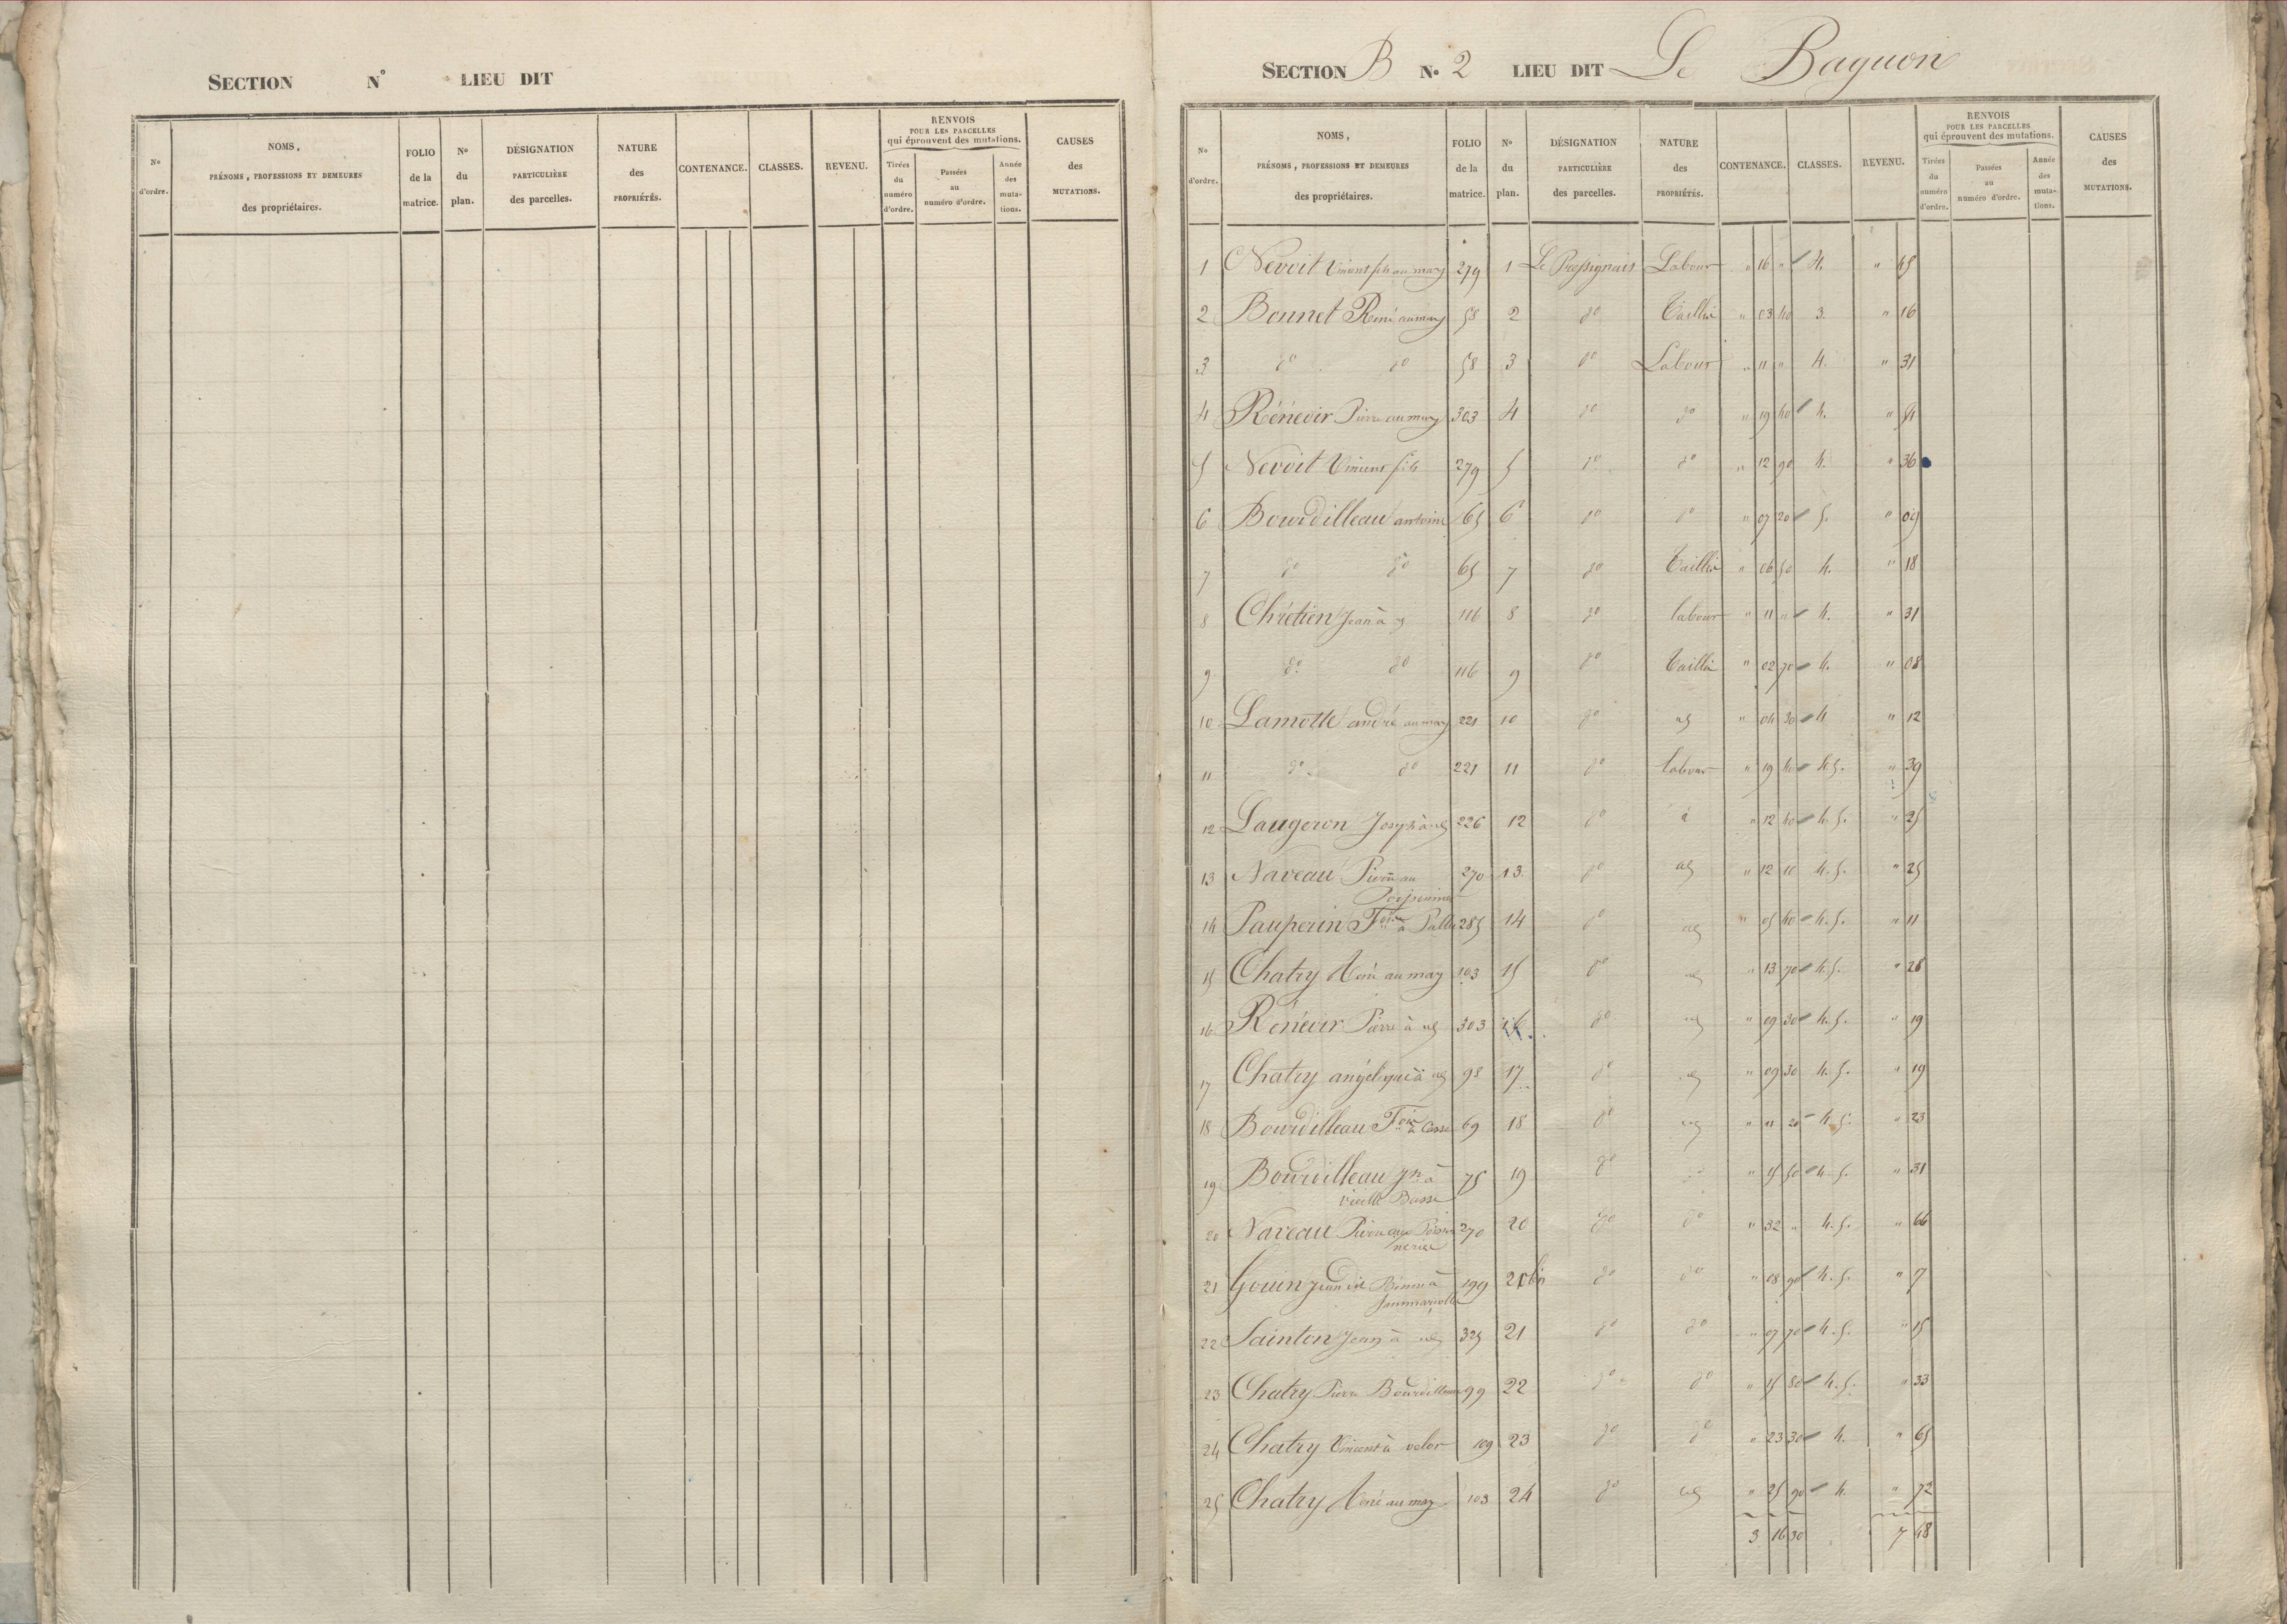 SECTION N° LIEU DIT
N° d'ordre. NOMS, PRÉNOMS, PROFESSIONS ET DEMEURES des propriétaires. FOLIO de la matrice. N° du plan. DÉSIGNATION PARTICULIÈRE des parcelles. NATURE des PROPRIÉTÉS. CONTENANCE. CLASSES. REVENU. RENVOIS POUR LES PARCELLES qui éprouvent des mutations. Tirées du numéro d'ordre. Passées au numéro d'ordre. Année des mutations. CAUSES des MUTATIONS.
SECTION B N° 2 LIEU DIT Le Baguon
N° d'ordre. NOMS, PRÉNOMS, PROFESSIONS ET DEMEURES des propriétaires. FOLIO de la matrice. N° du plan. DÉSIGNATION PARTICULIÈRE des parcelles. NATURE des PROPRIÉTÉS. CONTENANCE. CLASSES. REVENU. RENVOIS POUR LES PARCELLES qui éprouvent des mutations. Tirées du numéro d'ordre. Passées au numéro d'ordre. Année des mutations. CAUSES des MUTATIONS.
1 Nevoit Vincent fils au may 279 1 Le Pressignais Labour " 16 " 4. " 45
2 Bonnet René au may 58 2 do Taillis " 03 40 3. " 16
3 do do 58 3 do Labour " 11 " 4. " 31
4 Rénévoir Pierre au may 303 4 do do " 19 40 4. " 54
5 Nevoit Vincent fils 279 5 do do " 12 90 4. " 36
6 Bourdilleau antoine 65 6 do do " 07 20 5. " 09
7 do do 65 7 do Taillis " 06 50 4. " 18
8 Chrétien Jean à 116 8 do labour " 11 " 4. " 31
9 do do 116 9 do Taillis " 02 70 4. " 08
10 Lamotte andré au may 221 10 do " 04 30 4 " 12
11 do do 221 11 do labour " 19 40 4.5. " 39
12 Laugeron Joseph à 226 12 do " 12 40 4.5. " 25
13 Naveau Pierre au 270 13 do " 12 10 4.5. " 25
14 Pauperin Fois à 285 14 do " 05 40 4.5. " 11
15 Chatry René au may 103 15 do " 13 70 4.5. " 28
16 Rénévoir Pierre à 303 16 do " 09 30 4.5. " 19
17 Chatry angélique à 98 17 do " 09 30 4.5. " 19
18 Bourdilleau Fois à 69 18 do " 11 20 4.5. " 23
19 Bourdilleau Jn à 75 19 do " 15 50 4.5. " 31
vieille
20 Naveau Pierre 270 20 do do " 32 " 4.5. " 66
21 Gouin Jean dit à 199 20 bis do do " 08 90 4.5. " 7
22 Sainton Jean à 325 21 do do " 07 70 4.5. " 15
23 Chatry Pierre Bourdilleau 99 22 do do " 15 80 4.5. " 33
24 Chatry Vincent à velor 109 23 do do " 23 30 4. " 65
25 Chatry René au may 103 24 do " 25 90 4. " 72
3 16 30 7 48